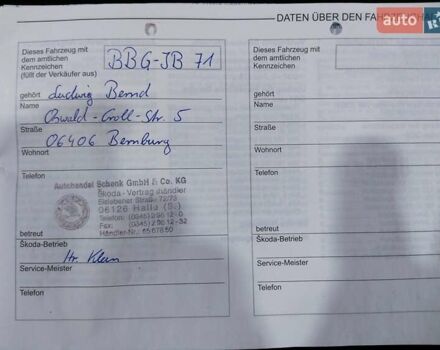 DATEN ÜBER DEN
auto
Dieses Fahrzeug mit
dem amtlichen
Kennzeichen
(füllt der Verkäufer aus)
BBG-JB 71
gehört
Ludwig Bernd
Name
Oswald-Croll-Str. 5
Straße
06406 Bernburg
Wohnort
Telefon
Autohandel Schenk GmbH & Co. KG
Škoda - Vertragshändler
Eislebener Straße 72/73
06126 Halle (S.)
Telefon: (0345) 2 96 12-0
Fax: (0345) 2 96 12-32
Händler-Nr.: 65 678 50
betreut
Škoda-Betrieb
Hr. Klein
Service-Meister
Telefon
Dieses Fahrzeug mit
dem amtlichen
Kennzeichen
gehört
Name
Straße
Wohnort
Telefon
betreut
Škoda-Betrieb
Service-Meister
Telefon